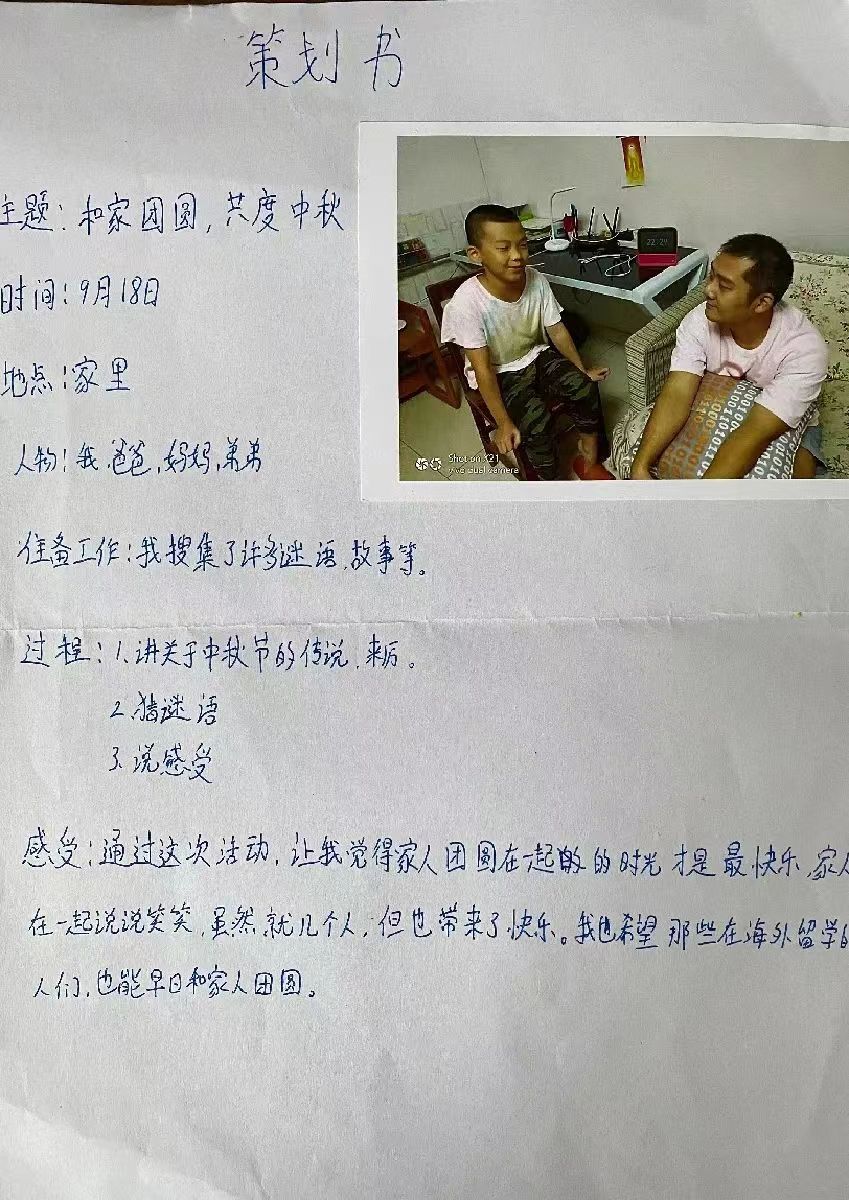 策划书
主题：和家团圆，共度中秋
时间：9月18日
地点：家里
人物：我，爸爸，妈妈，弟弟
准备工作：我搜集了许多谜语、故事等。
过程：1、讲关于中秋节的传说、来历。
2、猜谜语
3、说感受
感受：通过这次活动，让我觉得家人团圆在一起的时光才是最快乐，家人
在一起说说笑笑，虽然就几个人，但也带来了快乐。我也希望那些在海外留学的
人们，也能早日和家人团圆。
22:24
Shot on X21
vivo dual camera